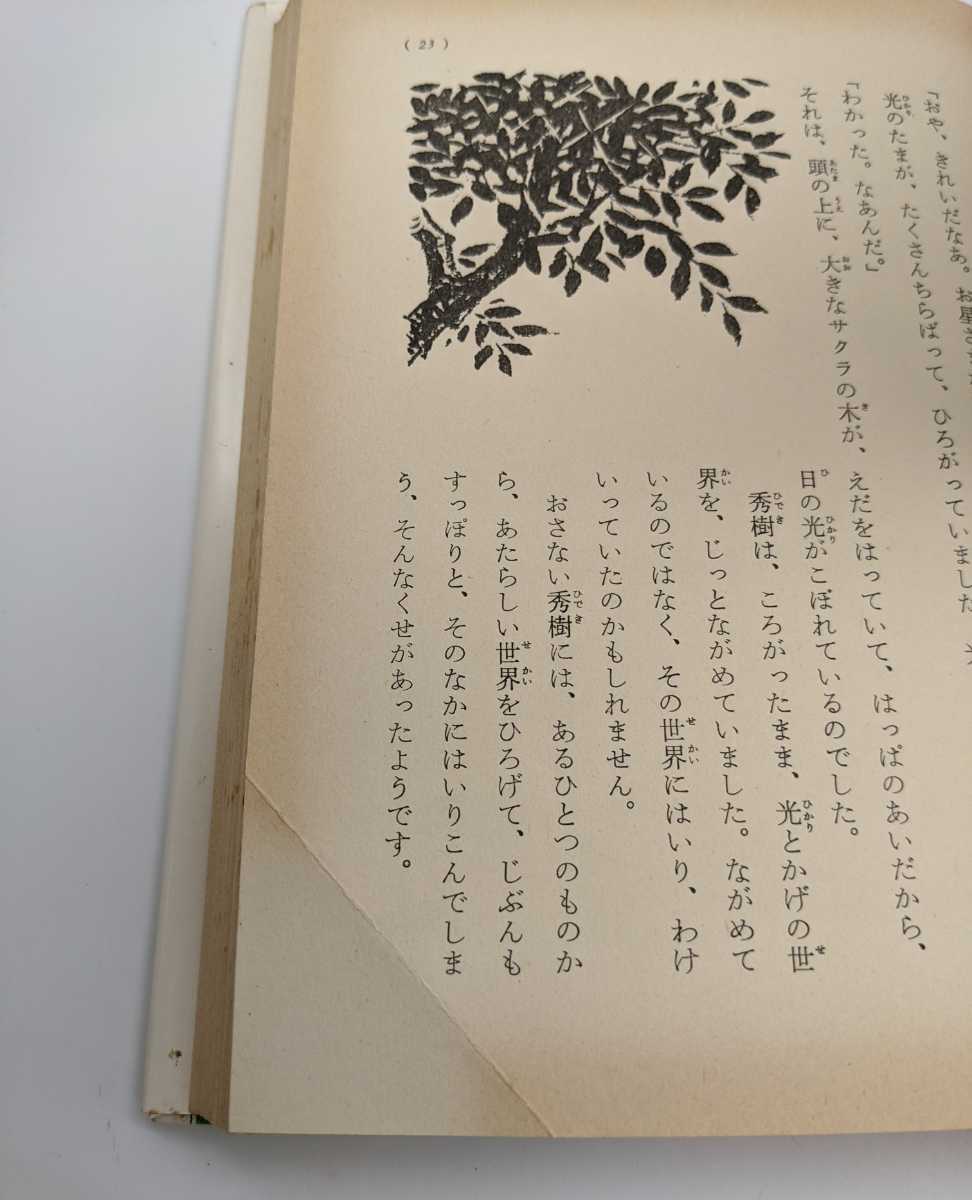 ( 23 )
「おや、きれいだなあ。お星さ
光のたまが、たくさんちらばって、ひろがっていました
「わかった。なあんだ。」
それは、頭の上に、大きなサクラの木が、えだをはっていて、はっぱのあいだから、
日の光がこぼれているのでした。
秀樹は、ころがったまま、光とかげの世
界を、じっとながめていました。ながめて
いるのではなく、その世界にはいり、わけ
いっていたのかもしれません。
おさない秀樹には、あるひとつのものか
ら、あたらしい世界をひろげて、じぶんも
すっぽりと、そのなかにはいりこんでしま
う、そんなくせがあったようです。